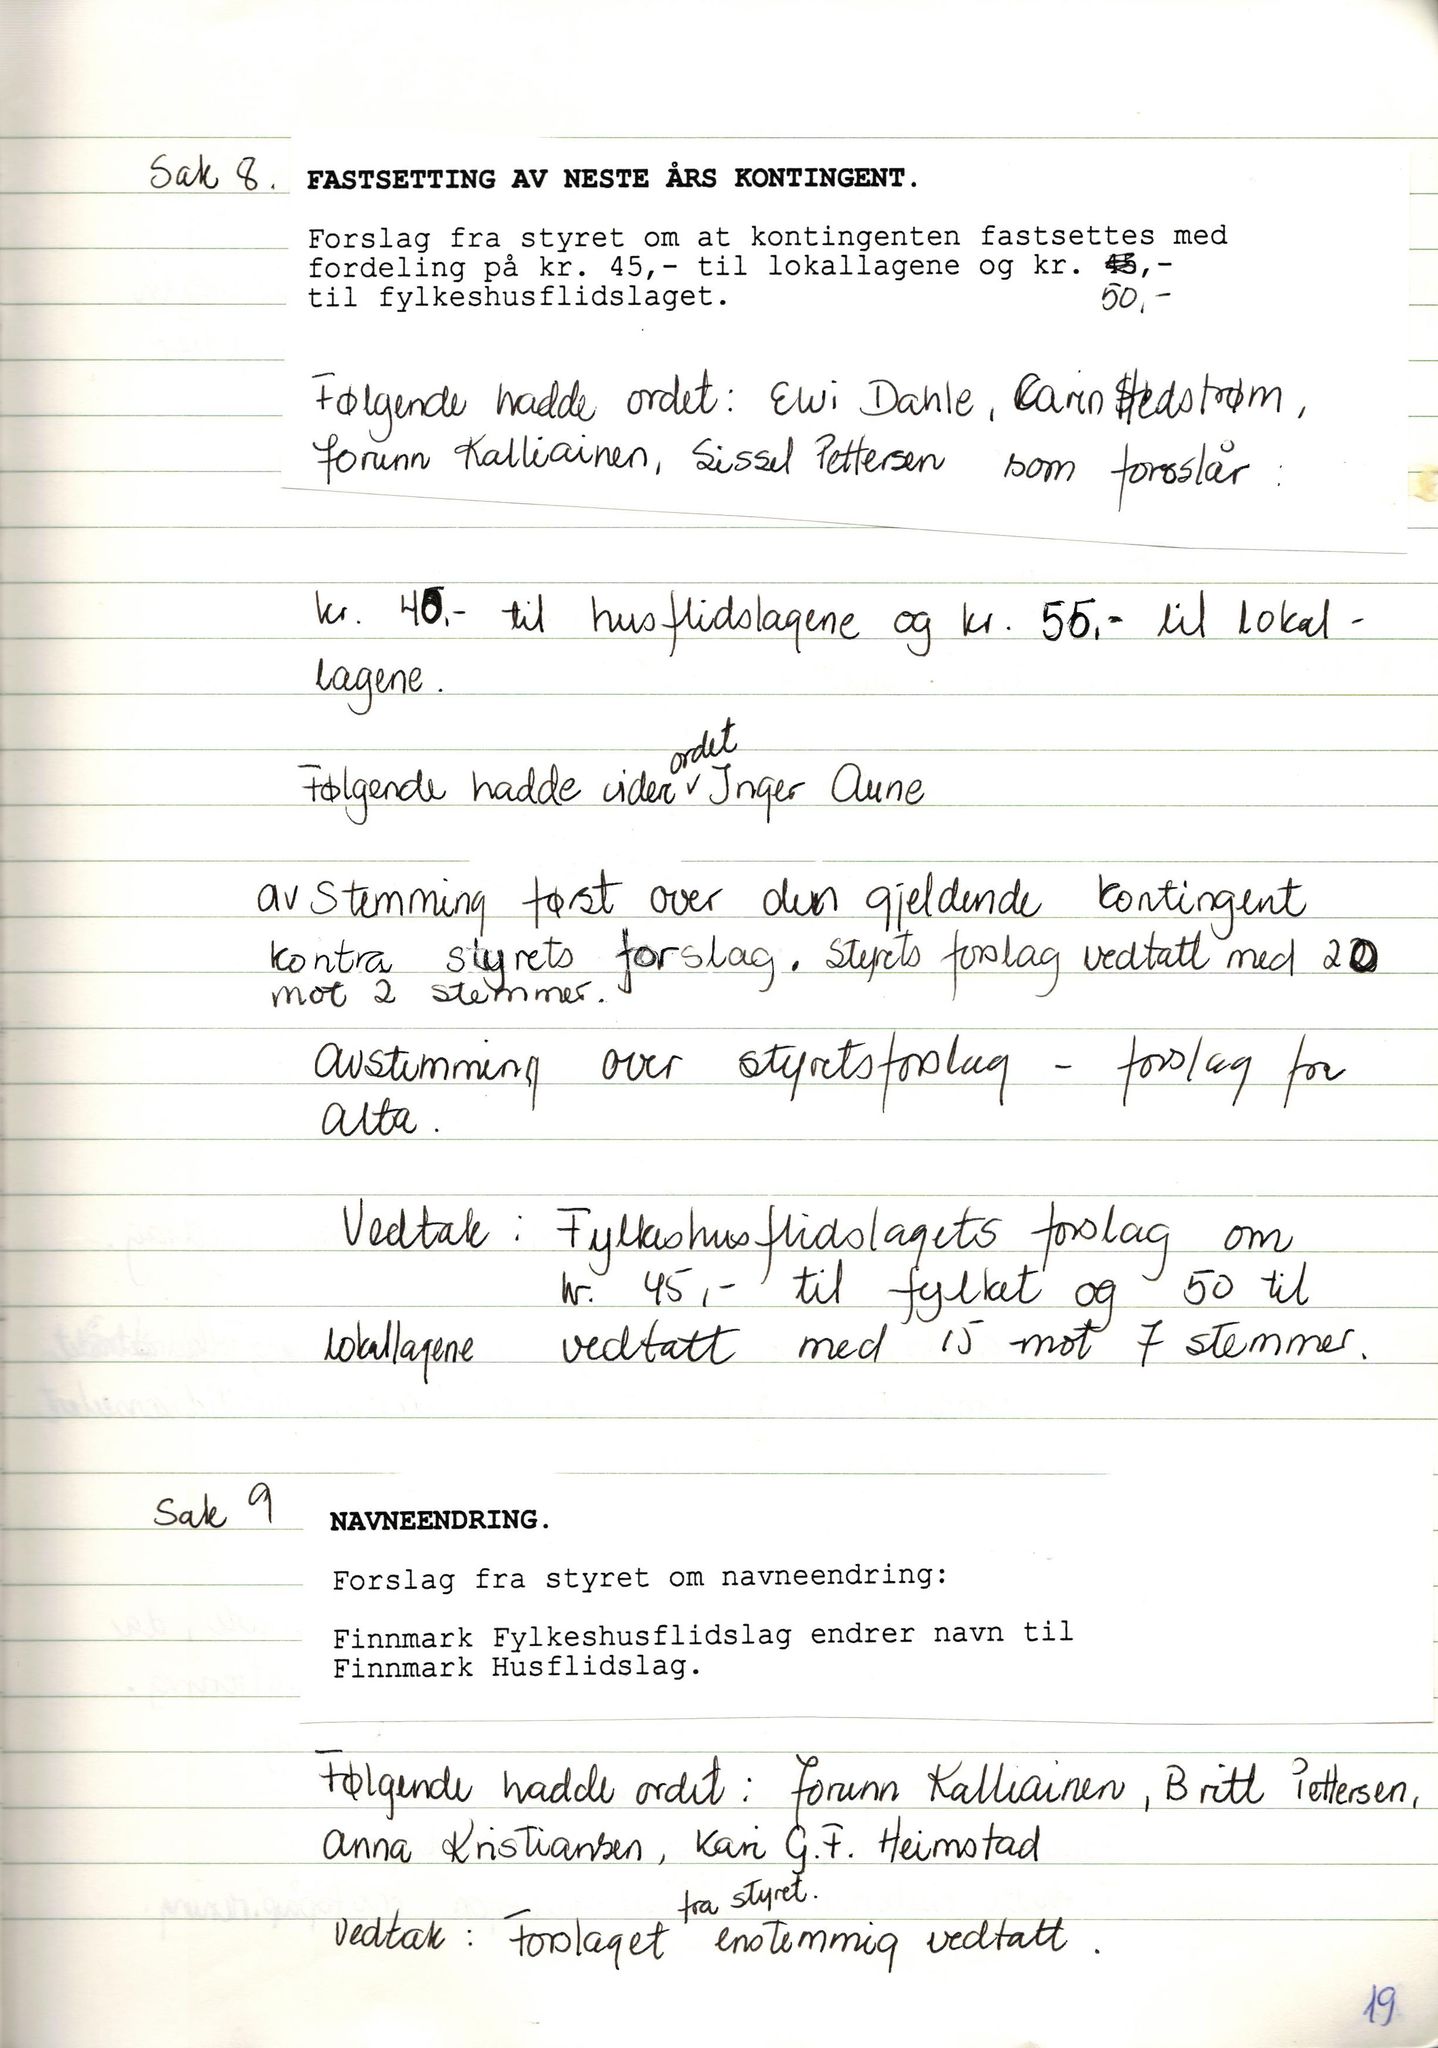 Sak 8. FASTSETTING AV NESTE ÅRS KONTINGENT.
Forslag fra styret om at kontingenten fastsettes med
fordeling på kr. 45,- til lokallagene og kr. 45,-
til fylkeshusflidslaget. 50,-
Følgende hadde ordet: Elvi Dahle, Carin Hedstrøm,
Jorunn Kalliainen, Sissel Pettersen som foroslår:
kr. 40,- til husflidslagene og kr. 55,- til lokal-
lagene.
ordet
Følgende hadde videre Inger Aune
avstemming først over den gjeldende kontingent
kontra styrets forslag. Styrets forslag vedtatt med 20
mot 2 stemmer.
Avstemming over styretsforslag - forslag fra
Alta.
Vedtak: Fylkeshusflidslagets forslag om
kr. 45,- til fylket og 50 til
lokallagene vedtatt med 15 mot 7 stemmer.
Sak 9 NAVNEENDRING.
Forslag fra styret om navneendring:
Finnmark Fylkeshusflidslag endrer navn til
Finnmark Husflidslag.
Følgende hadde ordet: Jorunn Kalliainen, Britt Pettersen,
Anna Kristiansen, Kari G.F. Heimstad
fra styret.
Vedtak: Forslaget enstemmig vedtatt.
19